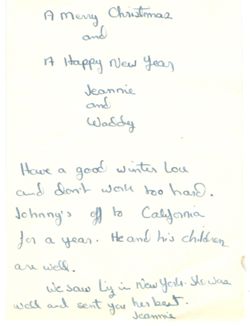 A Merry Christmas
and
A Happy New Year
Jeannie
and
Waddy
Have a good winter Lou
and don't work too hard.
Johnny's off to California
for a year. He and his children
are well.
We saw Liz in New York. She was
well and sent you her best.
Jeannie